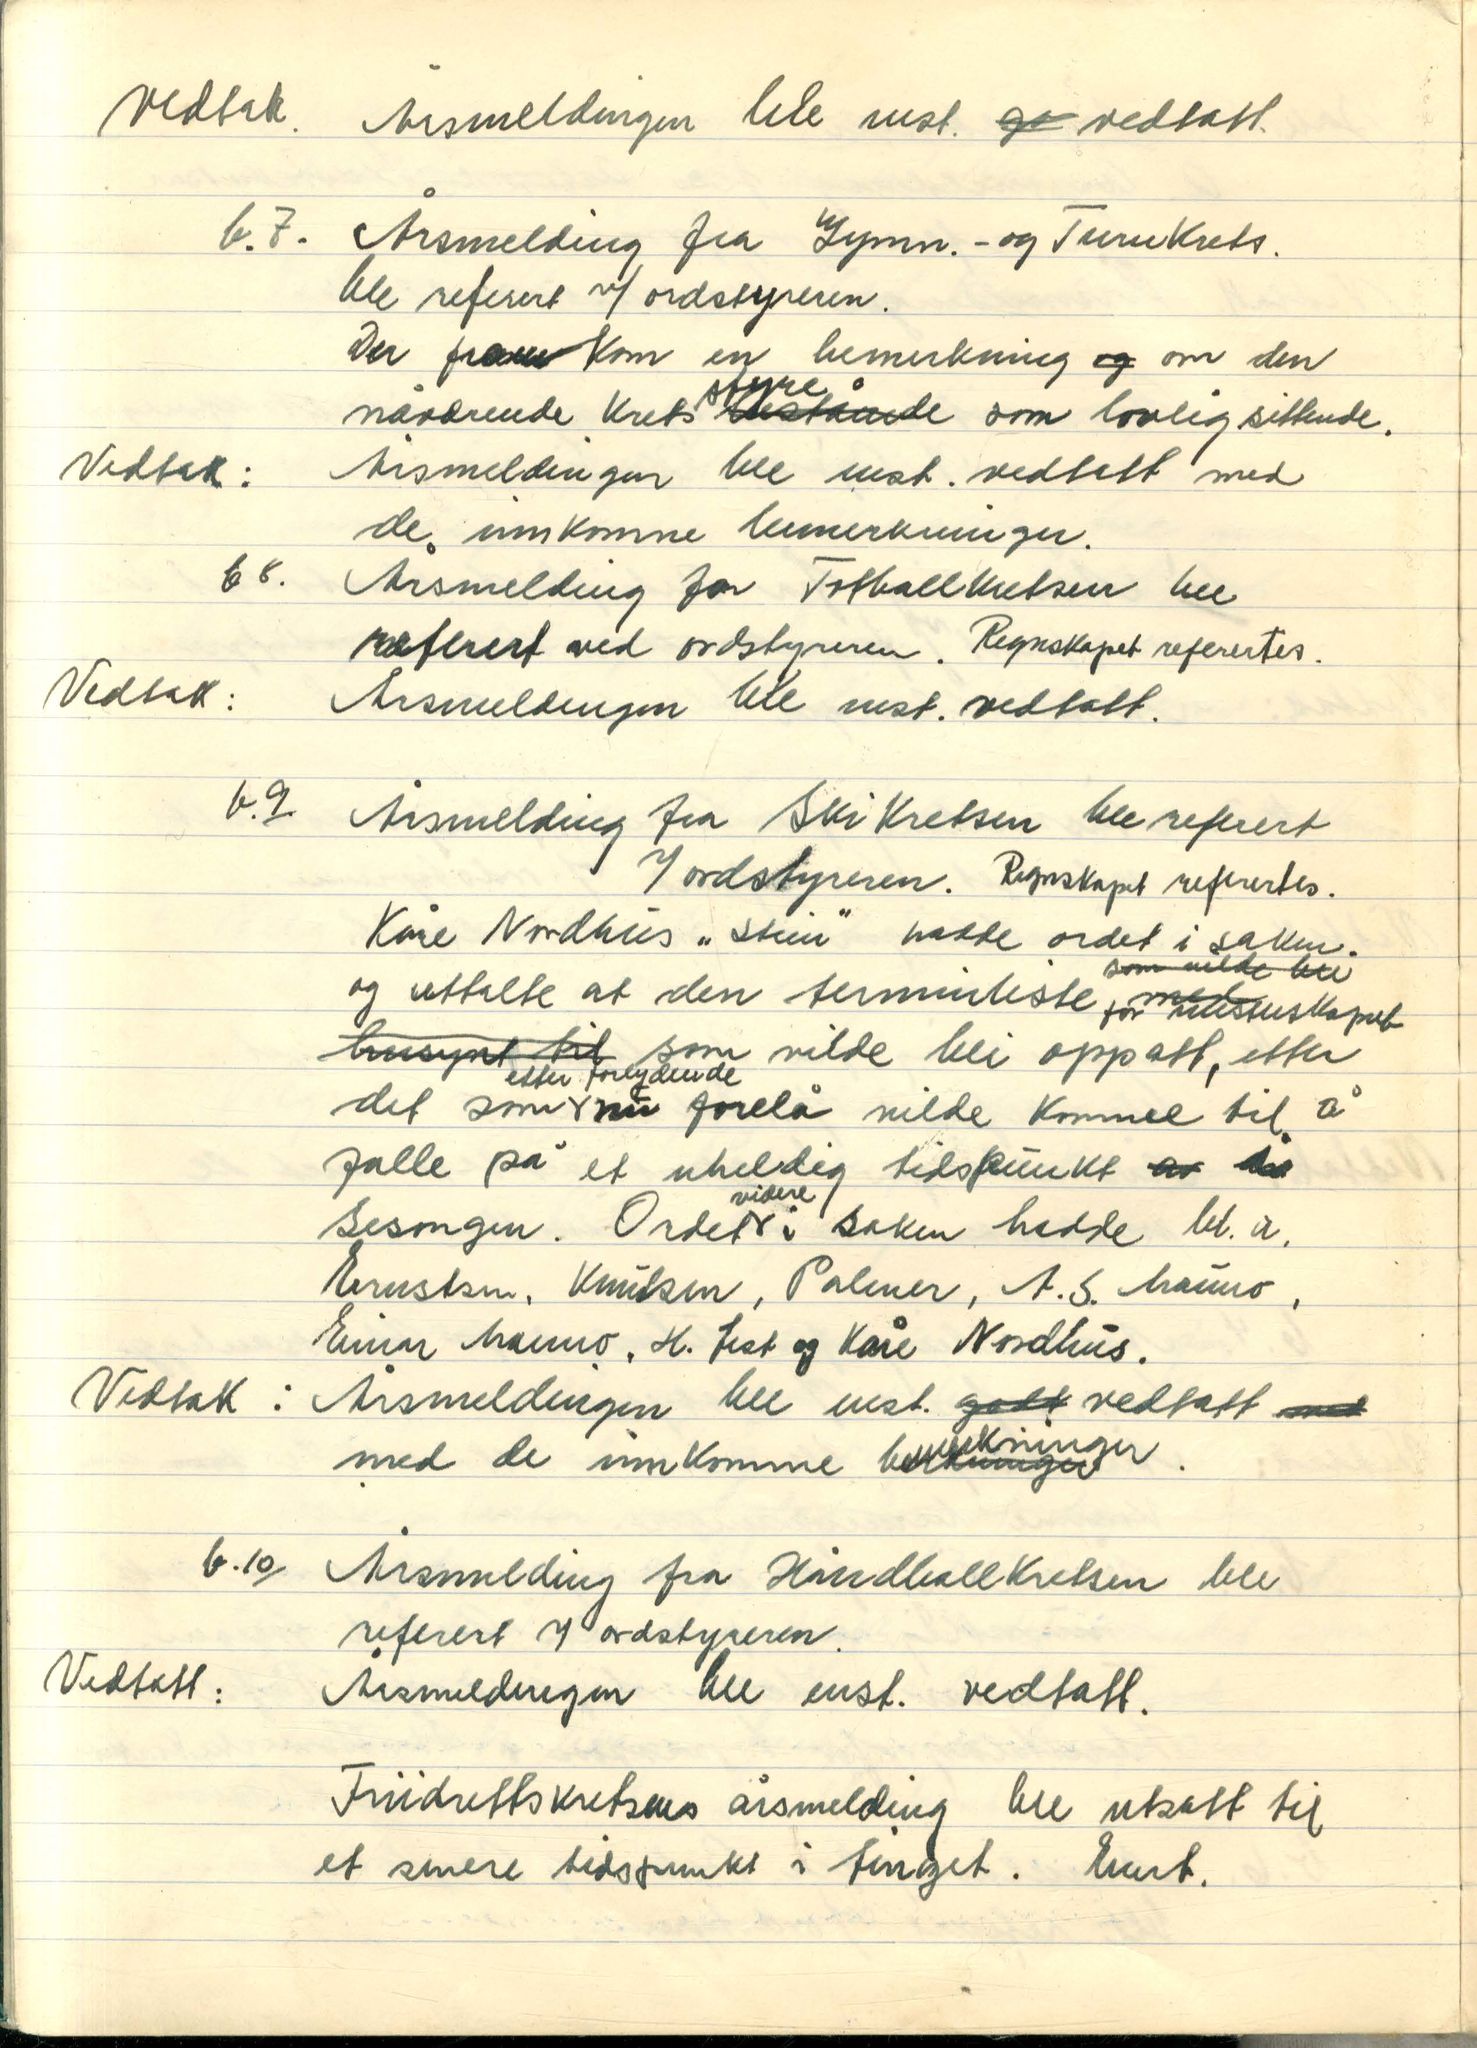 Vedtak. Årsmeldingen ble enst. ge vedtatt.
b.7. Årsmelding fra Gymn. - og Turnkrets.
ble referert v/ ordstyreren.
Der fram kom en bemerkning og om den
styre
nåværende krets bestående som lovlig sittende.
Vedtak: Årsmeldingen ble enst. vedtatt med
de innkomne bemerkninger.
b 8. Årsmelding for Fotballkretsen ble
referert ved ordstyreren. Regnskapet refertes.
Vedtak: Årsmeldingen ble enst. vedtatt.
b.9. Årsmelding fra Skikretsen ble referert
v/ ordstyreren. Regnskapet referertes.
Kåre Nordhus „Stein" hadde ordet i saken.
som vilde bli
og uttalte at den terminliste med for mesterskapet
hensynt til som vilde bli oppatt, etter
etter forlydende
det som nu forelå vilde komme til å
falle på et uheldig tidspunkt av
videre
Sesongen. Ordet i saken hadde bl. a.
Ernstsen, Knutsen, Palmer, A.S. Mauno,
Einar Mauno, H. Jest og Kåre Nordhus.
Vedtak: Årsmeldingen ble enst. godt vedtatt med
med de innkomne bemerkninger.
b.10. Årsmelding fra Håndballkretsen ble
referert v/ ordstyreren.
Vedtatt: Årsmeldingen ble enst. vedtatt.
Friidrettskretsens årsmelding ble utsatt til
et senere tidspunkt i tinget. Enst.